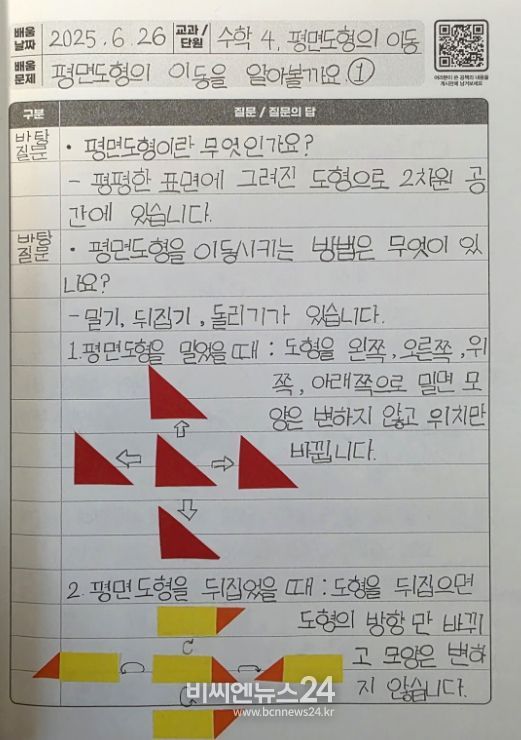 배움 날짜 2025. 6. 26 교과/단원 수학 4. 평면도형의 이동
배움 문제 평면도형의 이동을 알아볼까요 ①
구분 질문 / 질문의 답
바탕 질문 • 평면도형이란 무엇인가요?
- 평평한 표면에 그려진 도형으로 2차원 공
간에 있습니다.
바탕 질문 • 평면도형을 이동시키는 방법은 무엇이 있
나요?
- 밀기, 뒤집기, 돌리기가 있습니다.
1. 평면도형을 밀었을 때 : 도형을 왼쪽, 오른쪽, 위
쪽, 아래쪽으로 밀면 모
양은 변하지 않고 위치만
바뀝니다.
2. 평면도형을 뒤집었을 때 : 도형을 뒤집으면
도형의 방향만 바뀌
고 모양은 변하
지 않습니다.
비씨엔뉴스24
www.bcnnews24.kr